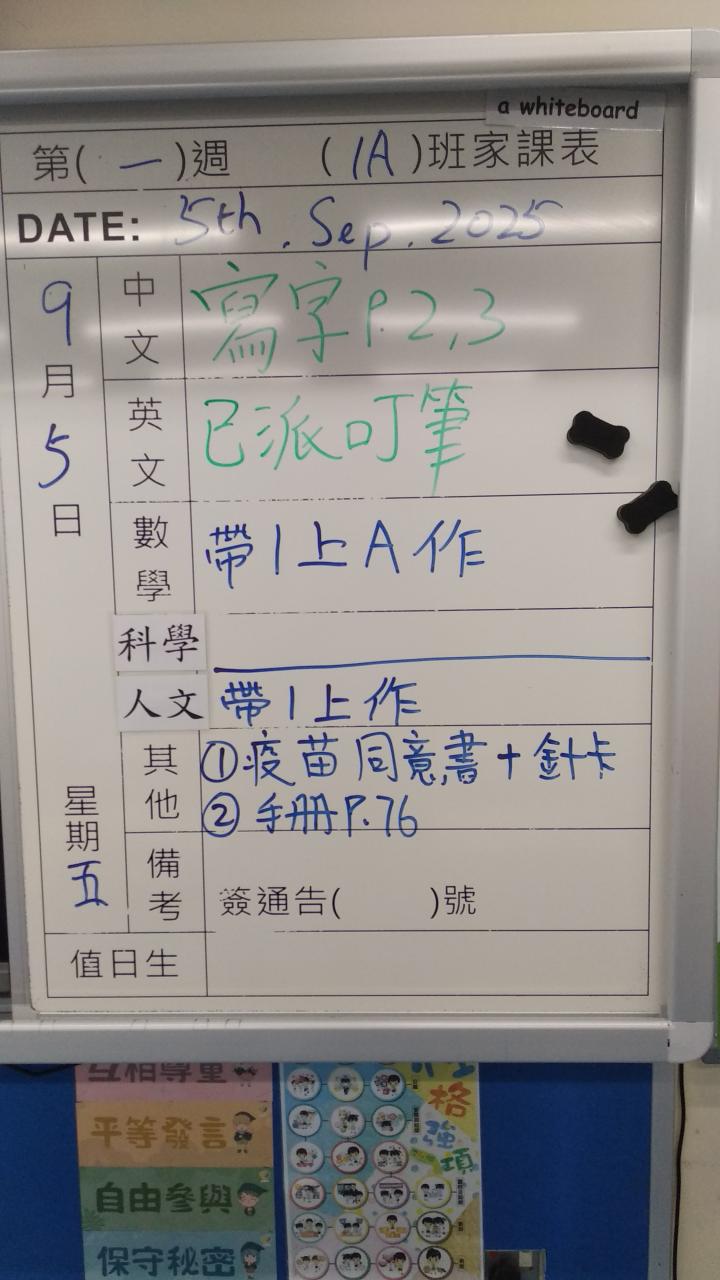 a whiteboard
第( 一 )週 ( 1A )班家課表
DATE: 5th. Sep. 2025
9月5日 星期五
中文 寫字P.2,3
英文 已派叮筆
數學 帶1上A作
科學
人文 帶1上作
其他 ①疫苗同意書+針卡
②手册P.76
備考 簽通告( )號
值日生
互相尊重
平等發言
自由參與
保守秘密
格
強
項